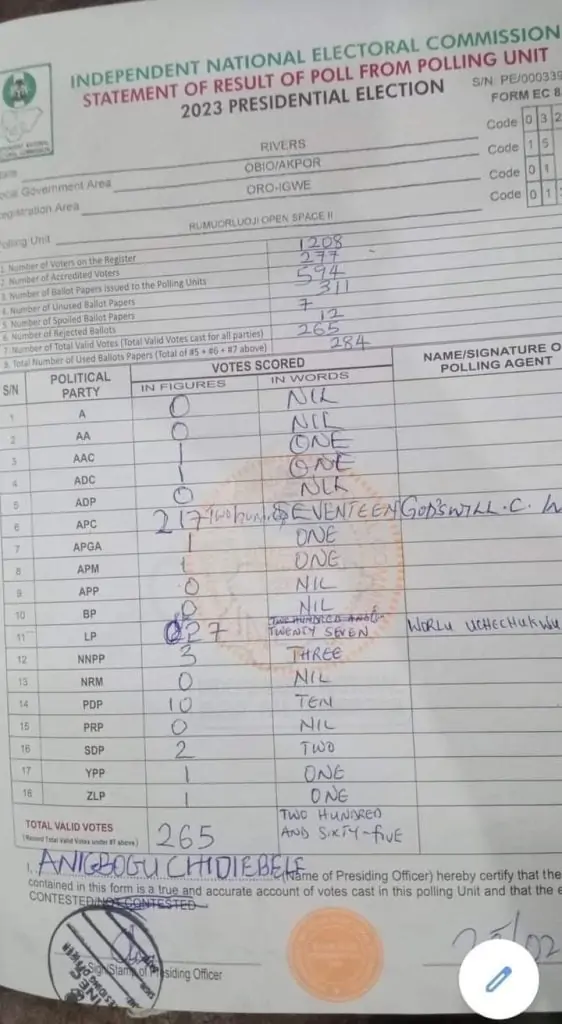 INDEPENDENT NATIONAL ELECTORAL COMMISSION
STATEMENT OF RESULT OF POLL FROM POLLING UNIT
2023 PRESIDENTIAL ELECTION
S/N: PE/000339
FORM EC 8
RIVERS Code 0 3 2
Local Government Area OBIO/AKPOR Code 1 5
Registration Area ORO-IGWE Code 0 1
Polling Unit RUMUORLUOJI OPEN SPACE II Code 0 1
1. Number of Voters on the Register 1208
2. Number of Accredited Voters 277
3. Number of Ballot Papers issued to the Polling Units 594
4. Number of Unused Ballot Papers 311
5. Number of Spoiled Ballot Papers 7
6. Number of Rejected Ballots 12
7. Number of Total Valid Votes (Total Valid Votes cast for all parties) 265
8. Total Number of Used Ballots Papers (Total of #5 + #6 + #7 above) 284
S/N POLITICAL PARTY VOTES SCORED NAME/SIGNATURE O
POLLING AGENT
IN FIGURES IN WORDS
1 A 0 NIL
2 AA 0 NIL
3 AAC 1 ONE
4 ADC 1 ONE
5 ADP 0 NIL
6 APC 217 SEVENTEEN GOD'SWILL. C.
7 APGA 1 ONE
8 APM 1 ONE
9 APP 0 NIL
10 BP 0 NIL
11 LP 27 TWENTY SEVEN WORLU UCHECHUKWU
12 NNPP 3 THREE
13 NRM 0 NIL
14 PDP 10 TEN
15 PRP 0 NIL
16 SDP 2 TWO
17 YPP 1 ONE
18 ZLP 1 ONE
TOTAL VALID VOTES 265 TWO HUNDRED
(Record Total Valid Votes under #7 above) AND SIXTY-FIVE
I, ANIGBOGU CHIDIEBELE (Name of Presiding Officer) hereby certify that the
contained in this form is a true and accurate account of votes cast in this polling Unit and that the e
CONTESTED/NOT CONTESTED
Sign/Stamp of Presiding Officer
INEC
PRESIDING OFFICER